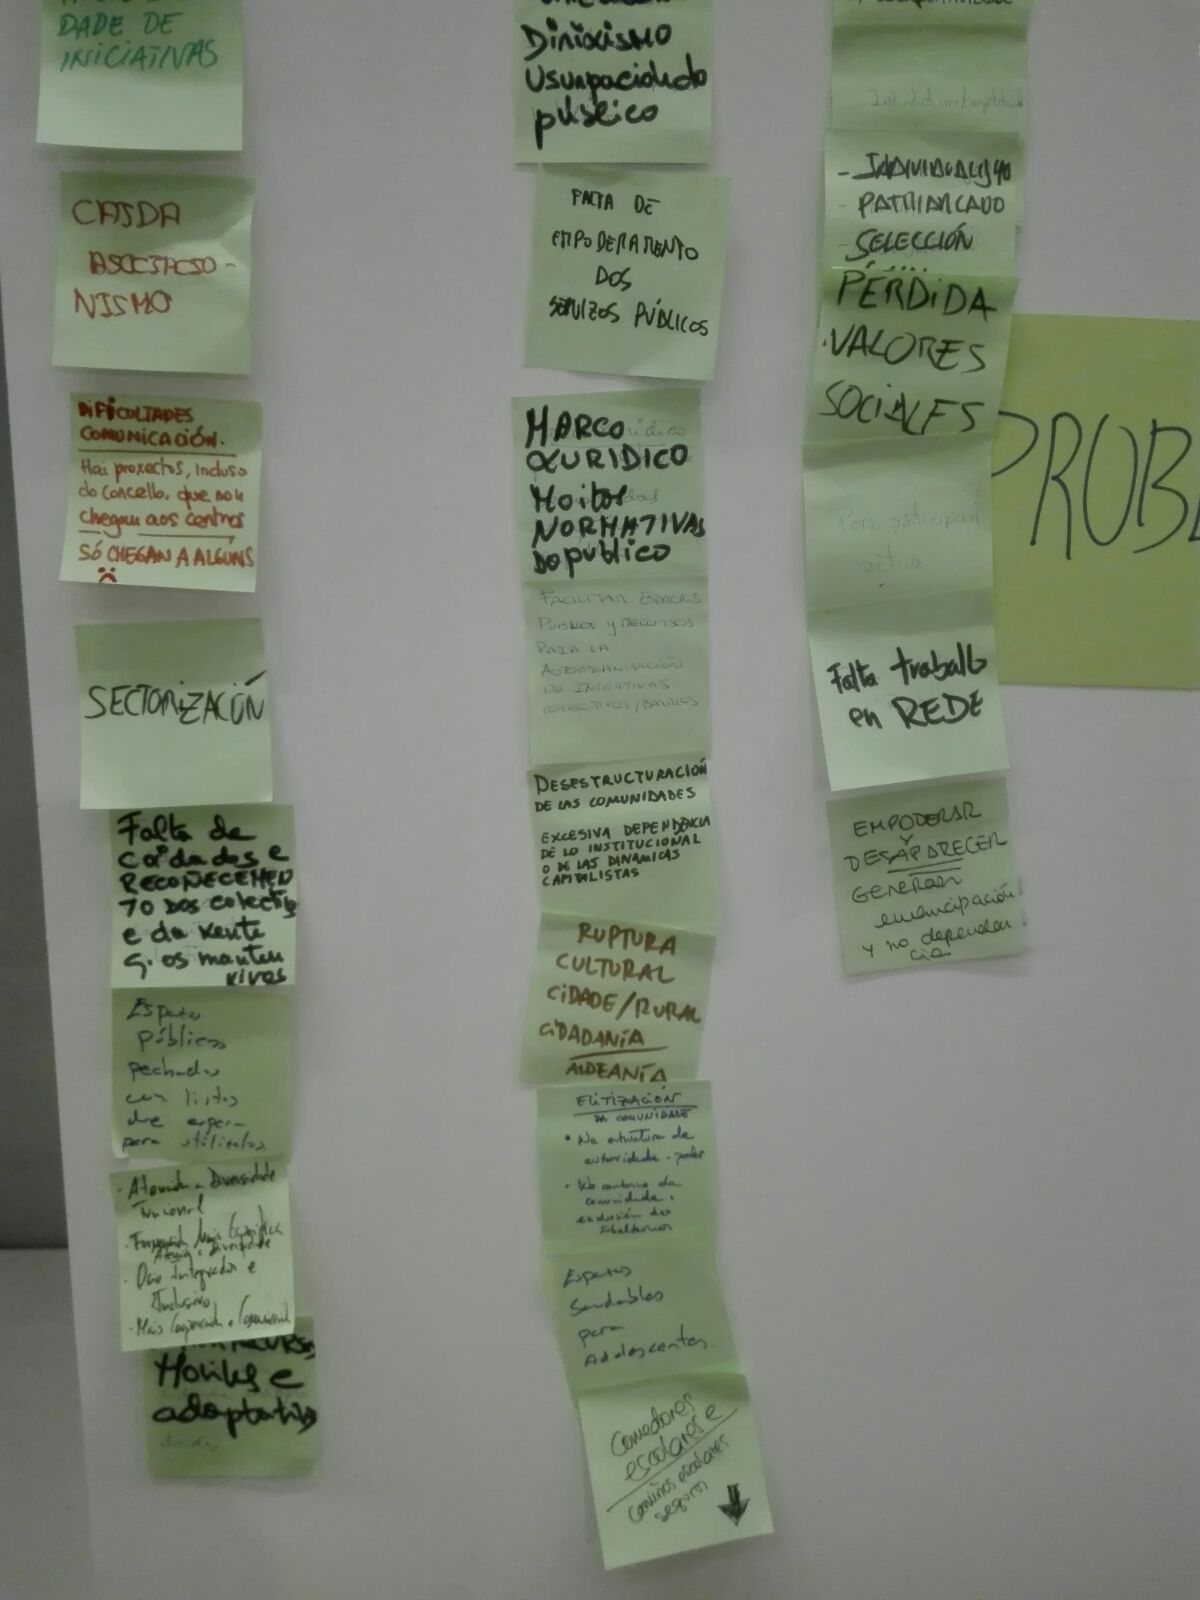 DADE DE
INICIATIVAS
CAIDA
ASOCIACIO-
NISMO
DIFICULTADES
COMUNICACIÓN.
Hai proxectos, incluso
do concello, que non
chegan aos centros
SÓ CHEGAN A ALGUNS
SECTORIZACIÓN
Falta de
coidados e
RECOÑECEMEN
TO DOS colectivos
e da xente
q. os manten
vivos
Espazos
públicos
pechados
con listas
de espera
para utilizalos
- Atención a Diversidade
Funcional
- Formación Mais Específica
Atención a Diversidade
- Ocio Integrador e
Inclusivo
- Mais
Móviles e
adaptativos
Dirixismo
Usurpación do
público
FALTA DE
EMPODERAMENTO
DOS
SERVIZOS PÚBLICOS
MARCO
XURIDICO
Moitas
NORMATIVAS
Do público
FACILITAR ESPACIOS
PUBLICOS Y RECURSOS
PARA LA
AUTOORGANIZACIÓN
DE INICIATIVAS
COLECTIVOS/BARRIOS
DESESTRUCTURACIÓN
DE LAS COMUNIDADES
EXCESIVA DEPENDENCIA
DE LO INSTITUCIONAL
O DE LAS DINAMICAS
CAPITALISTAS
RUPTURA
CULTURAL
CIDADE/RURAL
CIDADANÍA
ALDEANÍA
ELITIZACIÓN
DA COMUNIDADE
• Na estructura de
autoridade - poder
• No contorno da
comunidade.
exclusión dos
subalternos
Espazos
Saudables
para
Adolescentes.
Comedores
escolares e
camiños escolares
seguros
- INDIVIDUALISMO
- PATRIARCADO
- SELECCIÓN
PÉRDIDA
VALORES
SOCIALES
Para participación
activa
Falta traballo
en REDE
EMPODERAR
Y
DESAPARECER
GENERAR
emancipación
y no dependen
cia
PROBL